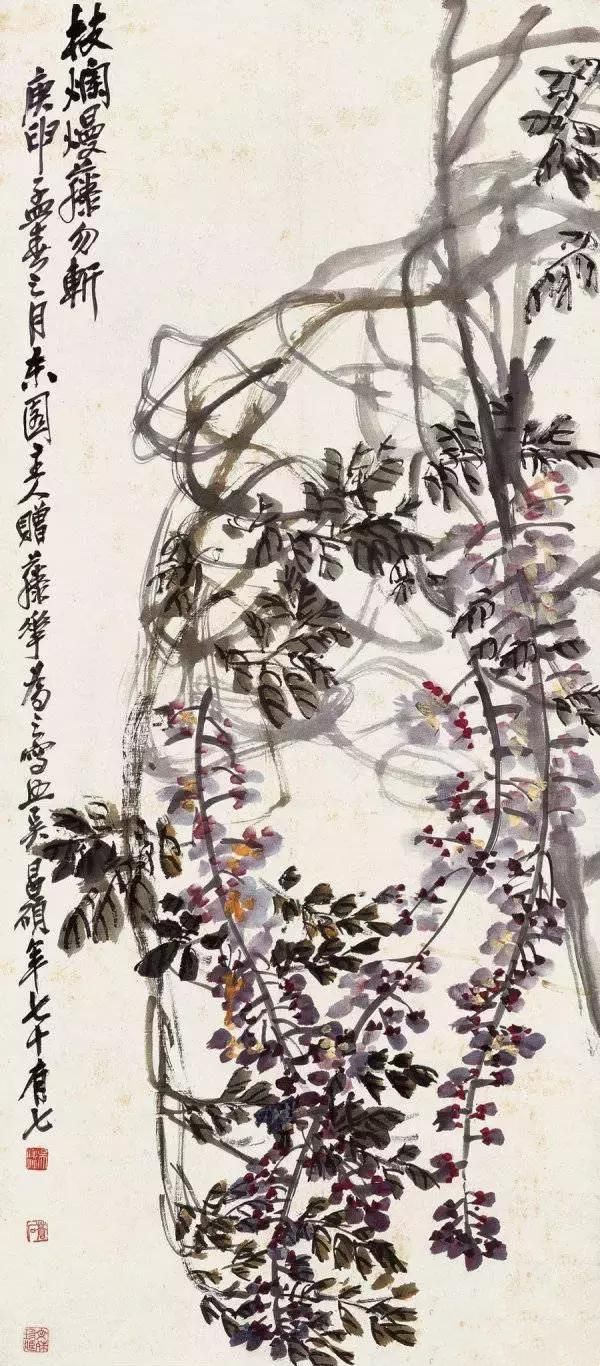 枝爛熳藤勿斬
庚申孟春之月東園主人贈藤華為之寫吳昌碩年七十有七